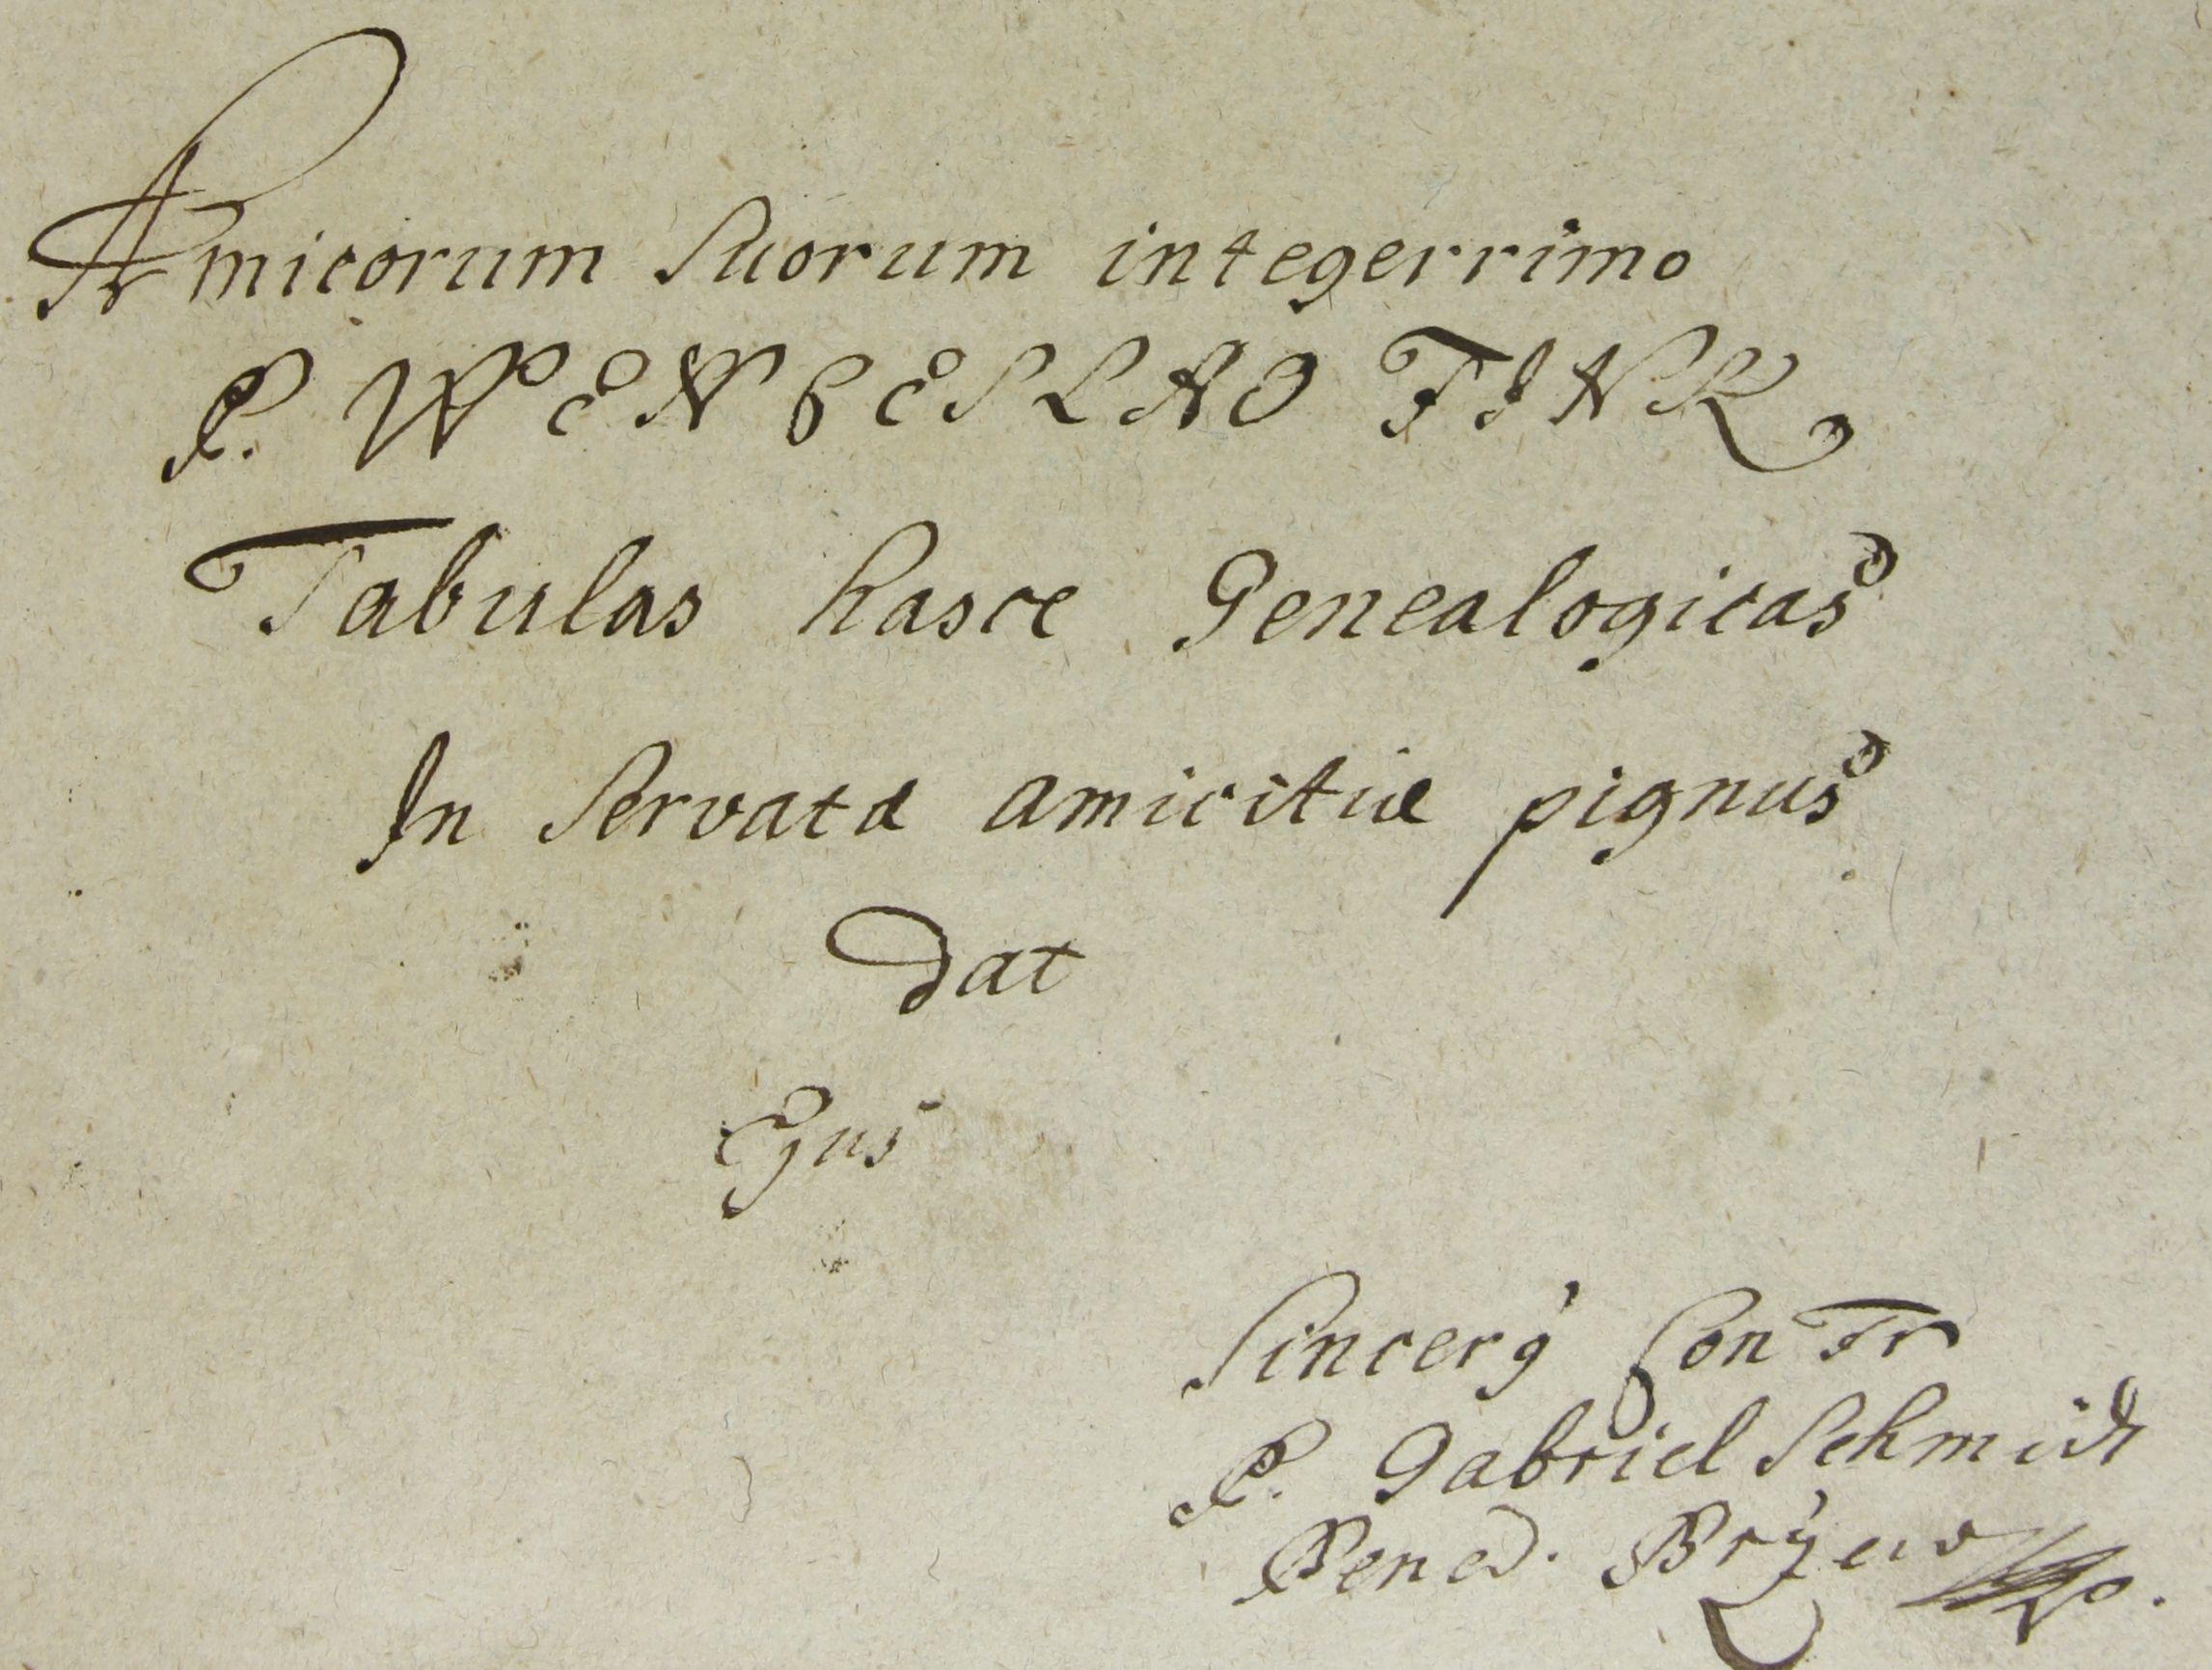 Amicorum Suorum integerrimo
P. WENCESLAO FINK
Tabulas hasce Genealogicas
In Servatæ amicitiæ pignus
Dat
Ejus
Sincerg Con Fr
P. Gabriel Schmidt
Bened.